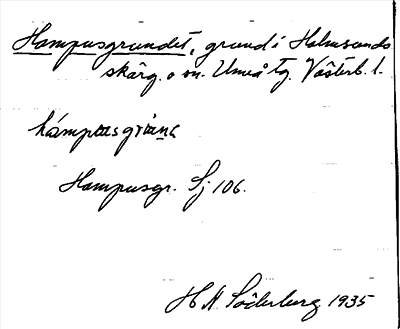 Hampusgrundet, grund i Holmsunds
skärg. o sn. Umeå tg. Västerb. l.
Hampusgr. Sj 106.
H. A. Söderberg 1935